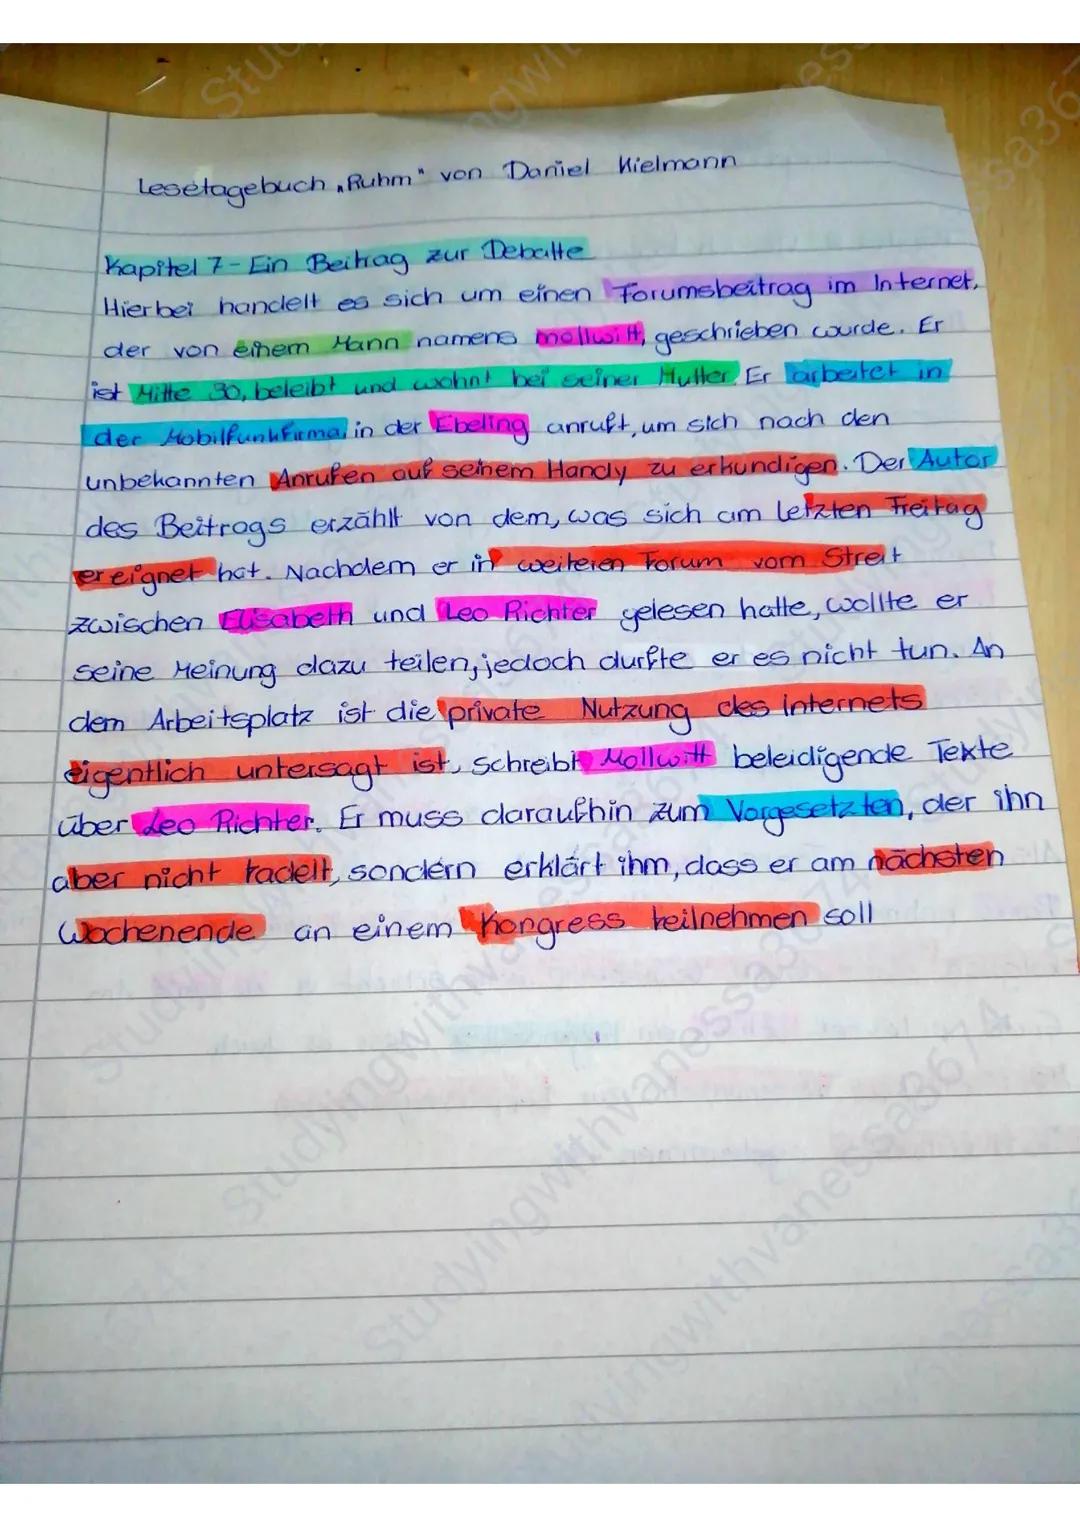 Lesetagebuch „Ruhm" von Daniel Kielmann
Kapitel 7 - Ein Beitrag zur Debatte
Hierbei handelt es sich um einen Forumsbeitrag im Internet,
der von einem Mann namens mollwitt, geschrieben wurde. Er
ist Mitte 30, beleibt und wohnt bei seiner Mutter. Er arbeitet in
der Mobilfunkfirma, in der Ebeling anruft, um sich nach den
unbekannten Anrufen auf seinem Handy zu erkundigen. Der Autor
des Beitrags erzählt von dem, was sich am letzten Freitag
ereignet hat. Nachdem er in weiteren Forum vom Streit
zwischen Elisabeth und Leo Richter gelesen hatte, wollte er
seine Meinung dazu teilen, jedoch durfte er es nicht tun. An
dem Arbeitsplatz ist die private Nutzung des Internets
eigentlich untersagt ist, schreibt Mollwitt beleidigende Texte
über Leo Richter. Er muss daraufhin zum Vorgesetzten, der ihn
aber nicht tadelt, sondern erklärt ihm, dass er am nächsten
Wochenende an einem Kongress teilnehmen soll
Studyingwithvanessa3674
Studyingwithvanessa3674
Studyingwithvanessa3674